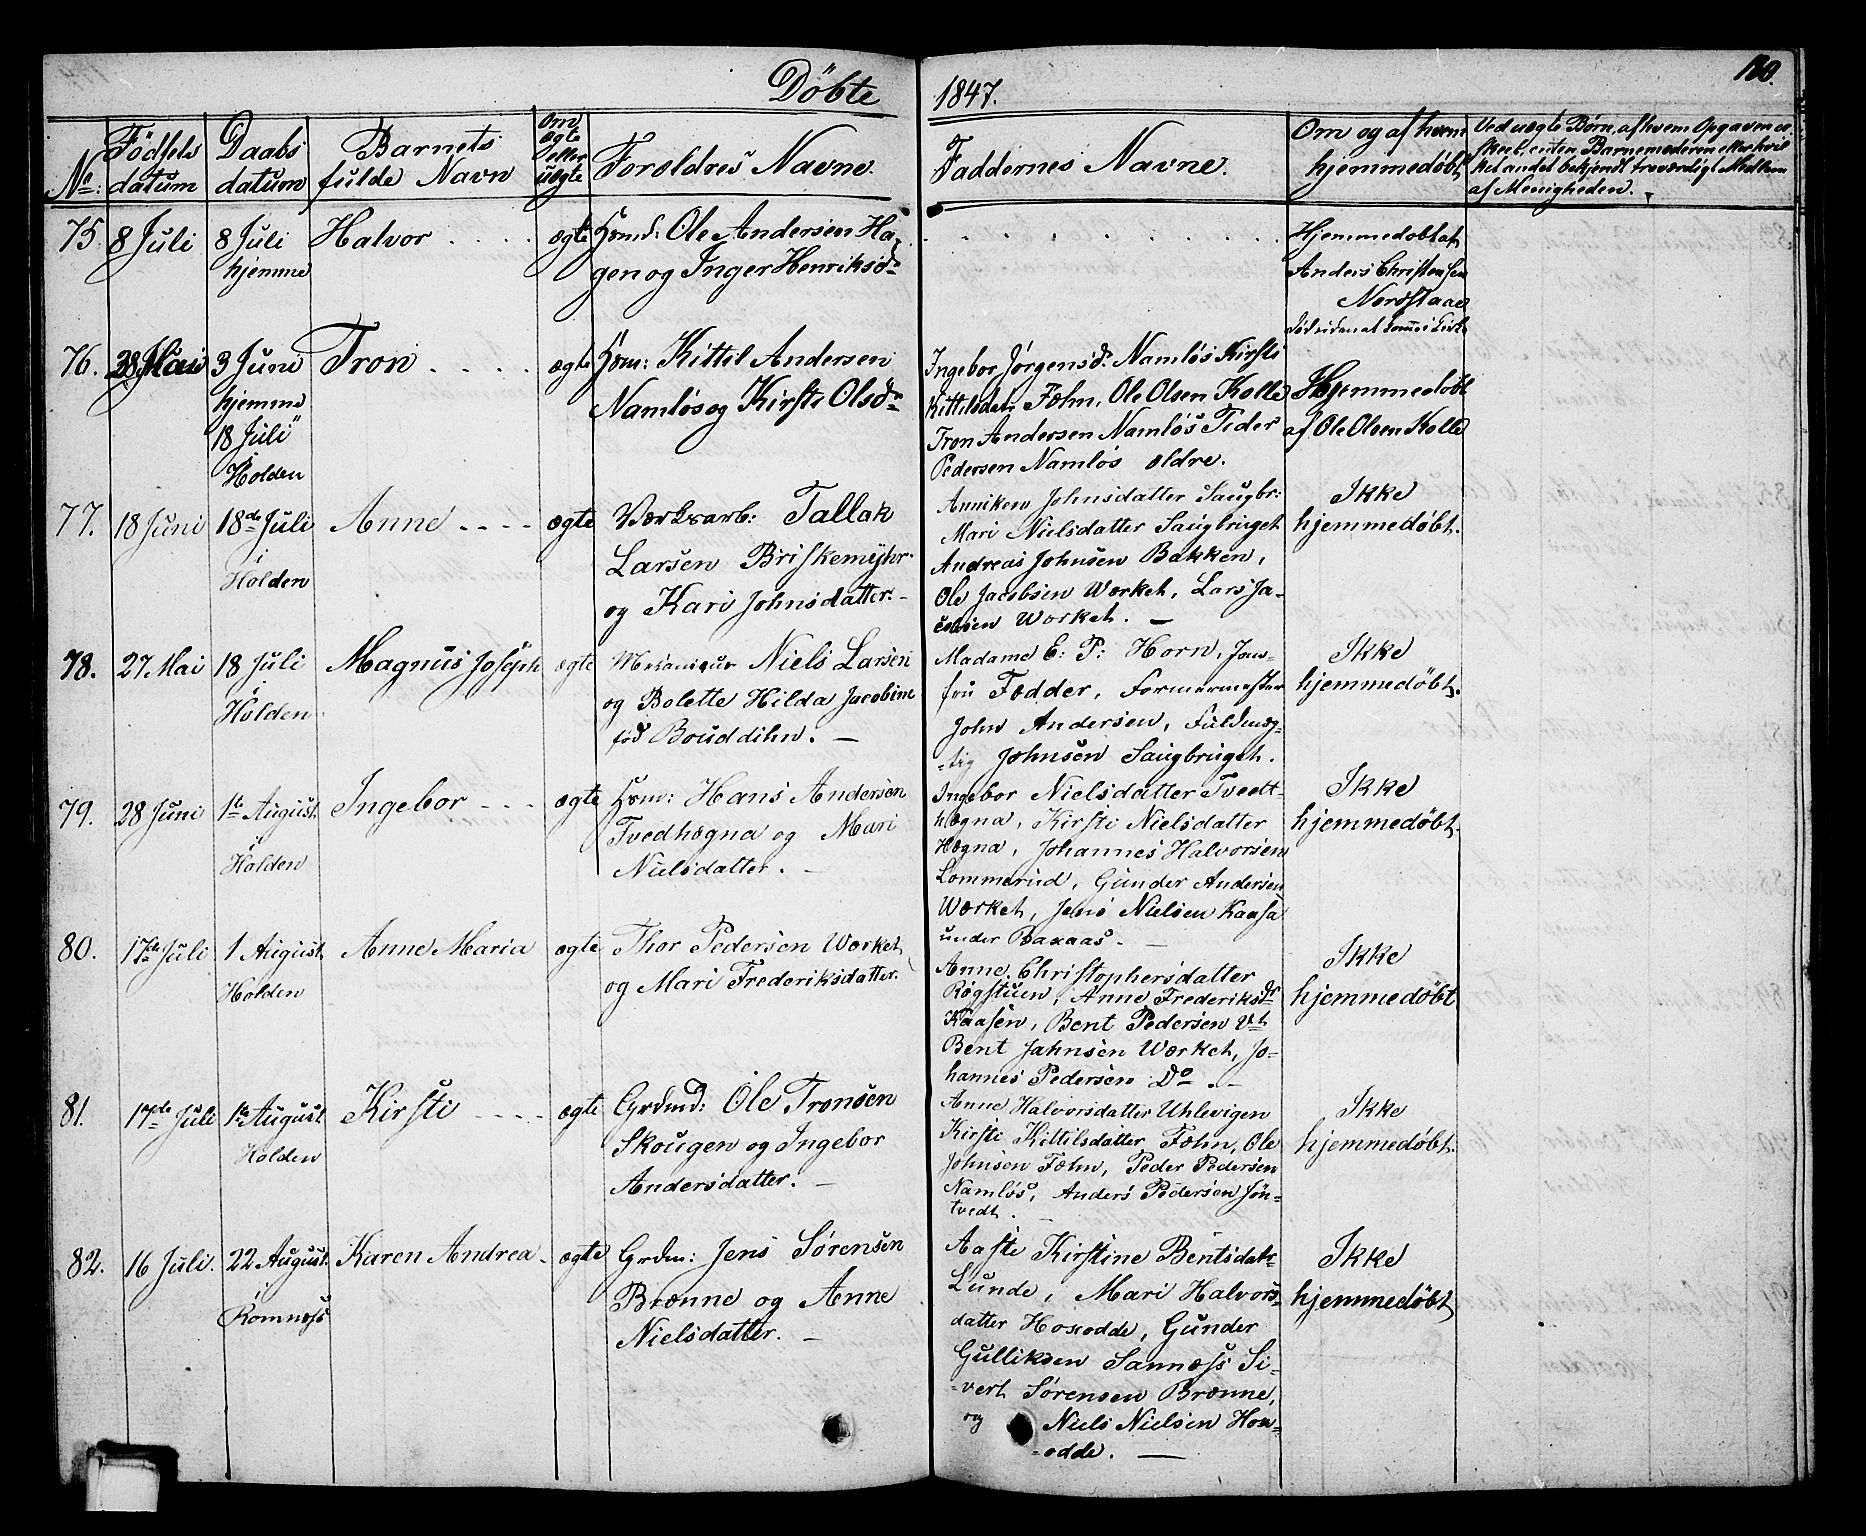 Döbte
1847.
No: Födsels datum
Daabs datum
Barnets fulde Navn
Om ægte eller uægte
Foroldres Navne.
Faddernes Navne.
Om og af hvem hjemmedøbt
Ved uægte Børn, af hvem Opgaven er
skeet, enten Barnemoderen eller hvil
ket andet bekjendt troværdigt Medlem
af Menigheden.
75. 8 Juli
8 Juli
hjemme
Halvor
ægte
Hsmd: Ole Andersen Ha-
gen og Inger Henriksdr
Hjemmedøbt af
Anders Christensen
Nordstaae
76. 28 Mai
3 Juni
hjemme
18 Juli
Holden
Tron
ægte
Hsm: Kittil Andersen
Namløs og Kirsti Olsdr
Ingebor Jørgensdr Namløs Kirsti
Kittilsdtr Fæhn, Ole Olsen Kolle
Tron Andersen Namløs Peder
Pedersen Namløs ældre.
Hjemmedøbt
af Ole Olsen Kolle
77. 18 Juni
18de Juli
i
Holden
Anne
ægte
Værksarb: Tallak
Larsen Briskemyhr
og Kari Johnsdatter.
Anniken Johnsdatter Saugbr:
Mari Nielsdatter Saugbruget
Andreas Johnsen Bakken,
Ole Jacobsen Wærket, Lars Ja-
cobsen Wærket.
Ikke
hjemmedøbt.
78. 27. Mai
18 Juli
i
Holden
Magnus Joseph
ægte
Mekanicus Niels Larsen
og Bolette Hilda Jacobine
fød Bouddihn.
Madame E: P: Horn, Jom-
fru Fædder, Formermester
John Andersen, Fuldmæg-
-tig Johnsen Saugbruget.
Ikke
hjemmedøbt.
79. 28 Juni
1te August
i
Holden
Ingebor
ægte
Hsm: Hans Andersen
Tvedhægna og Mari
Nielsdatter.
Ingebor Nielsdatter Tvedt-
hægna, Kirsti Nielsdatter
Hægna, Johannes Halvorsen
Lommerud, Gunder Andersen
Wærket, Jens Nielsen Kaasa
under Baxaas.
Ikke
hjemmedøbt.
80. 17de Juli
1 August
Holden
Anne Maria
ægte
Thor Pedersen Wærket
og Mari Frederiksdatter.
Anne Christophersdatter
Røgstuen, Anne Frederiksdr
Kaasen, Bent Pedersen Vt
Bent Jahnsen Wærket, Jo-
hannes Pedersen Do.
Ikke
hjemmedøbt
81. 17de Juli
1te August
Holden
Kirsti
ægte
Grdmd: Ole Tronsen
Skougen og Ingebor
Andersdatter.
Anne Halvorsdatter Uhlevigen
Kirsti Kittilsdatter Fæhn, Ole
Johnsen Fæhn, Peder Pedersen
Namløs, Anders Pedersen Søn-
tvedt.
Ikke
hjemmedøbt.
82. 16 Juli.
22 August.
i
Romnæss
Karen Andrea
ægte
Grdm: Jens Sørensen
Brænne og Anne
Nielsdatter.
Aaste Kirstine Bentsdatr
Lunde, Mari Halvors-
datter Hoxodde, Gunder
Gulliksen Sannæss Si-
-vert Sørensen Brænne,
og Niels Nielsen Hox-
-odde.
Ikke
hjemmedøbt